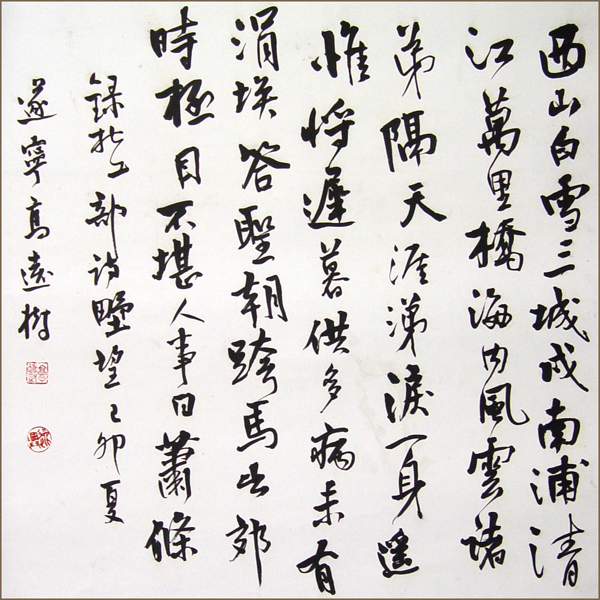 西山白雪三城戍南浦清
江萬里橋海内風雲諸
弟隔天涯涕淚一身遥
惟將遲暮供多病未有
涓埃答聖朝跨馬出郊
時極目不堪人事日蕭條
録杜工部詩墅望己卯夏
遂寧高遠樹